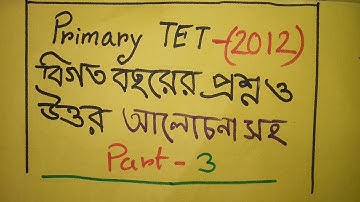 Primary TET-(2012)
বিগত বছরের প্রশ্ন ও
উত্তর আলোচনা সহ
Part - 3